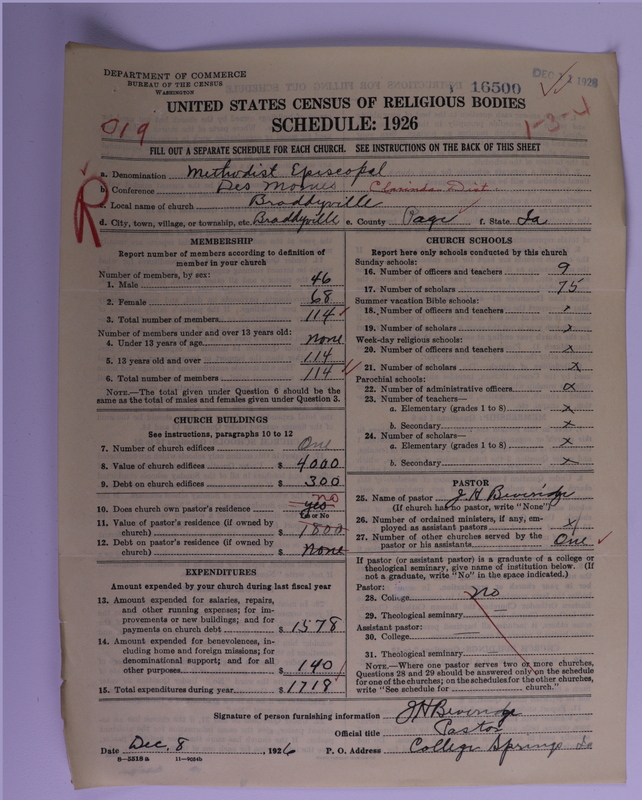 DEPARTMENT OF COMMERCE
BUREAU OF THE CENSUS
WASHINGTON
16500
DEC 1926
UNITED STATES CENSUS OF RELIGIOUS BODIES
SCHEDULE: 1926
019
1-3-4
FILL OUT A SEPARATE SCHEDULE FOR EACH CHURCH. SEE INSTRUCTIONS ON THE BACK OF THIS SHEET
R
a. Denomination Methodist Episcopal
b. Conference Des Moines Clarinda Dist.
c. Local name of church Braddyville
d. City, town, village, or township, etc. Braddyville e. County Page f. State Ia
MEMBERSHIP
Report number of members according to definition of
member in your church
Number of members, by sex:
1. Male 46
2. Female 68
3. Total number of members 114
Number of members under and over 13 years old:
4. Under 13 years of age None
5. 13 years old and over 114
6. Total number of members 114
NOTE.—The total given under Question 6 should be the
same as the total of males and females given under Question 3.
CHURCH BUILDINGS
See instructions, paragraphs 10 to 12
7. Number of church edifices One
8. Value of church edifices $ 4000
9. Debt on church edifices $ 300
10. Does church own pastor's residence yes no
Yes or No
11. Value of pastor's residence (if owned by
church) $ 1800
12. Debt on pastor's residence (if owned by
church) $ None
EXPENDITURES
Amount expended by your church during last fiscal year
13. Amount expended for salaries, repairs,
and other running expenses; for im-
provements or new buildings; and for
payments on church debt $ 1578
14. Amount expended for benevolences, in-
cluding home and foreign missions; for
denominational support; and for all
other purposes $ 140
15. Total expenditures during year $ 1718
CHURCH SCHOOLS
Report here only schools conducted by this church
Sunday schools:
16. Number of officers and teachers 9
17. Number of scholars 75
Summer vacation Bible schools:
18. Number of officers and teachers x
19. Number of scholars x
Week-day religious schools:
20. Number of officers and teachers x
21. Number of scholars x
Parochial schools:
22. Number of administrative officers x
23. Number of teachers—
a. Elementary (grades 1 to 8) x
b. Secondary x
24. Number of scholars—
a. Elementary (grades 1 to 8) x
b. Secondary x
PASTOR
25. Name of pastor J. H. Beveridge
(If church has no pastor, write "None")
26. Number of ordained ministers, if any, em-
ployed as assistant pastors x
27. Number of other churches served by the
pastor or his assistants One
If pastor (or assistant pastor) is a graduate of a college or
theological seminary, give name of institution below. (If
not a graduate, write "No" in the space indicated.)
Pastor:
28. College No
29. Theological seminary —
Assistant pastor:
30. College —
31. Theological seminary —
NOTE.—Where one pastor serves two or more churches,
Questions 28 and 29 should be answered only on the schedule
for one of the churches; on the schedules for the other churches,
write "See schedule for church."
Signature of person furnishing information J H Beveridge
Official title Pastor
Date Dec. 8, 1926 P. O. Address College Springs Ia
8—5518a 11—9034b